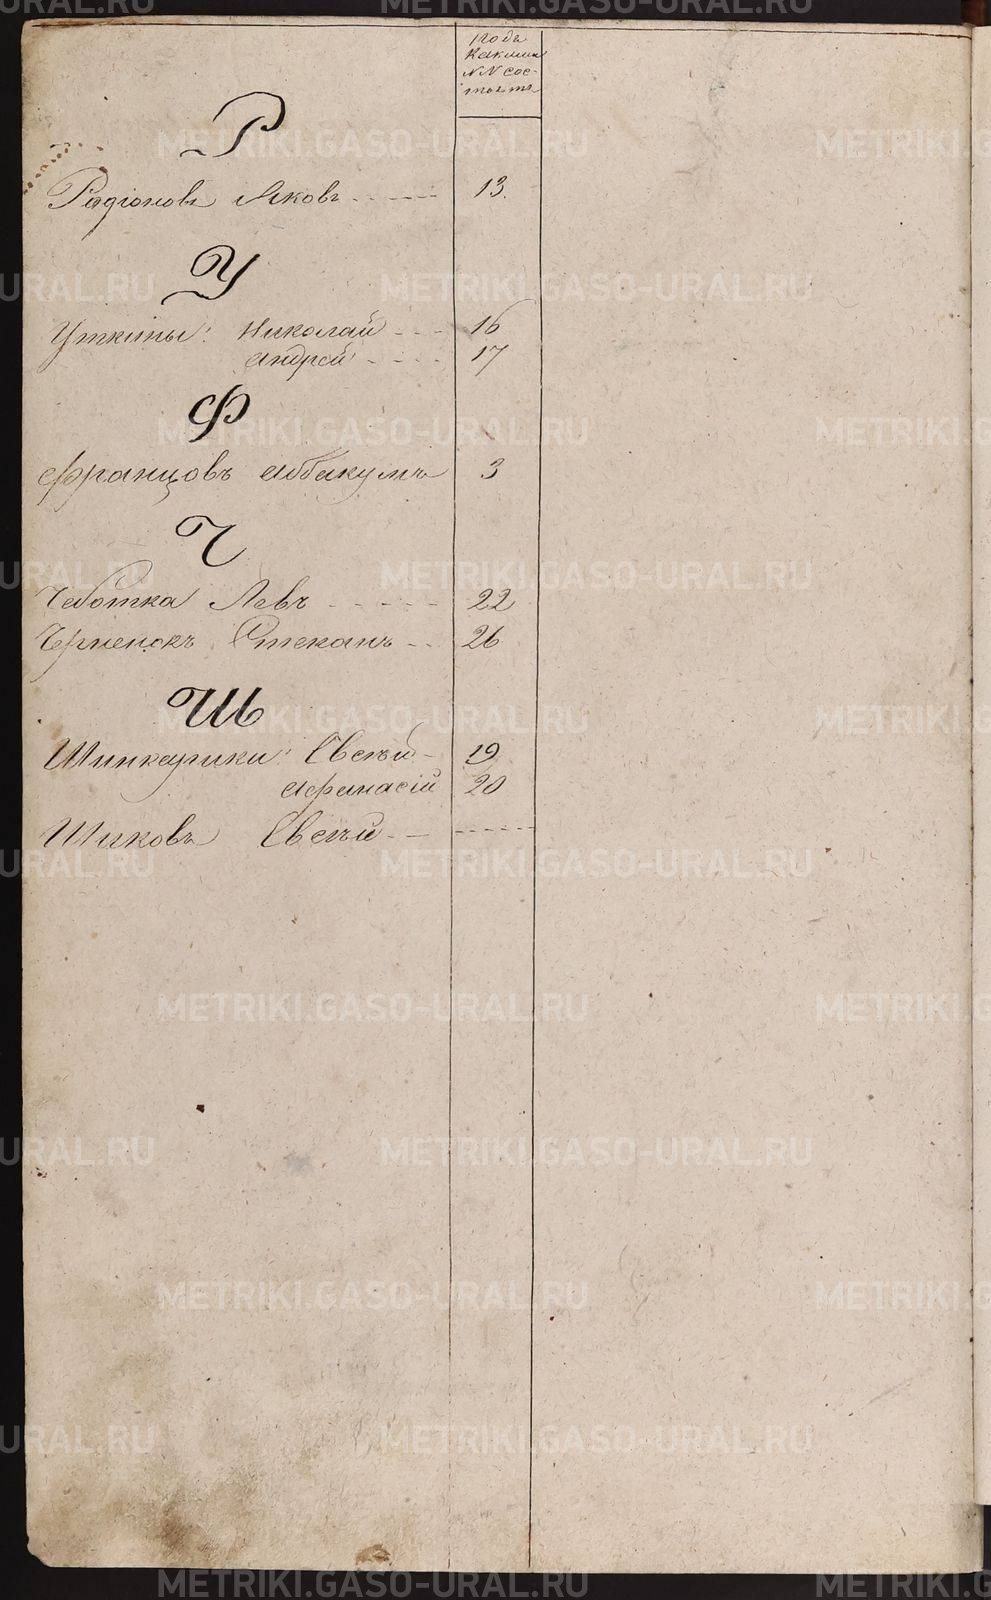 Подъ
какими
NN сос-
тоятъ
Р
Радіоновъ Яковъ 13.
У
Уткины: Николай 16
Андрей 17
Ф
Францовъ Аббакумъ 3
Ч
Чеботка Левъ 22
Черненокъ Степанъ 26
Ш
Шинкарики: Евсѣй 19
Афанасій 20
Шиковъ Евсѣй
METRIKI.GASO-URAL.RU